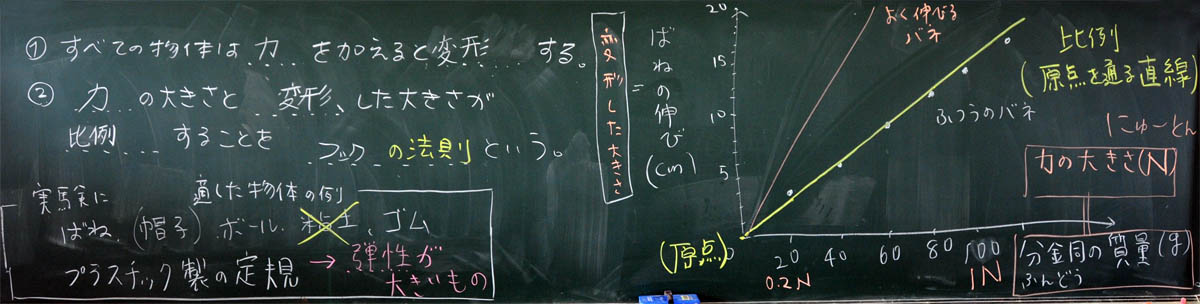 ① すべての物体は力を加えると変形する。
② 力の大きさと変形した大きさが
比例することを フックの法則という。
実験に適した物体の例
ばね、(帽子)、ボール、粘土、ゴム
プラスチック製の定規 → 弾性が
大きいもの
変形した大きさ
=
ばねの伸び(cm)
20
15
10
5
0
よく伸びる
バネ
比例
(原点を通る直線)
ふつうのバネ
にゅーとん
力の大きさ(N)
(原点)
20 40 60 80 100
0.2N
1N
分金同の質量(g)
ふんどう